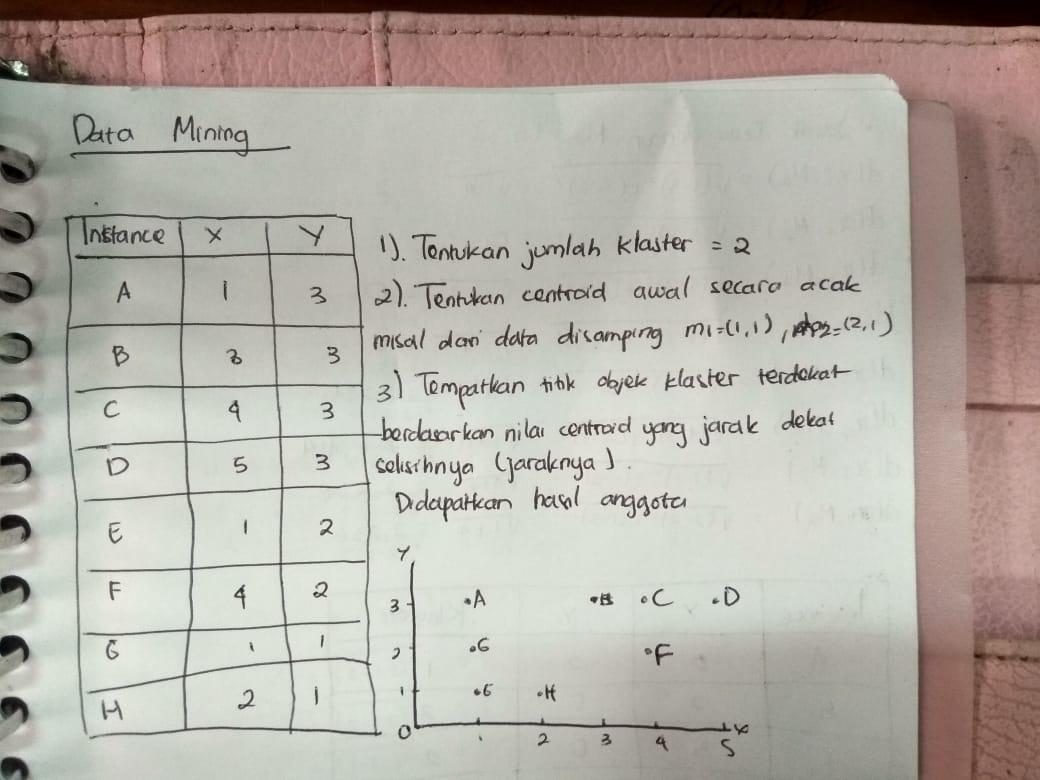 Data Mining
Instance X Y
A 1 3
B 3 3
C 4 3
D 5 3
E 1 2
F 4 2
G 1 1
H 2 1
1). Tentukan jumlah klaster = 2
2). Tentukan centroid awal secara acak
misal dari data disamping m1=(1,1), m2=(2,1)
3) Tempatkan titik objek klaster terdekat
berdasarkan nilai centroid yang jarak dekat
selisihnya (jaraknya).
Didapatkan hasil anggota
Y
3 .A .B .C .D
2 .G .F
1 .G .H
0 1 2 3 4 5 X